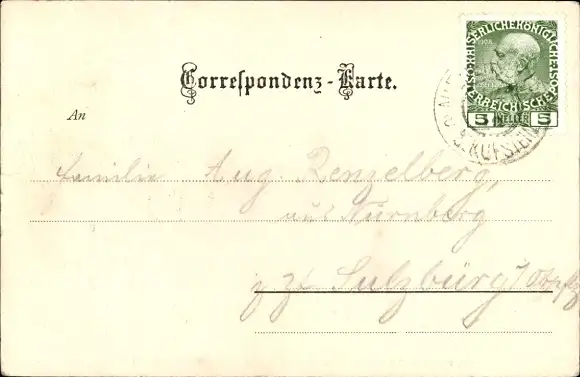 KAISERLICHE KÖNIGLICHE
ÖSTERREICHISCHE POST
1908
5 HELLER 5
KUFSTEIN
Correspondenz-Karte.
An
Familie Aug. Renzelberg,
aus Nürnberg
z. Zt. Sulzbürg / Obpflz